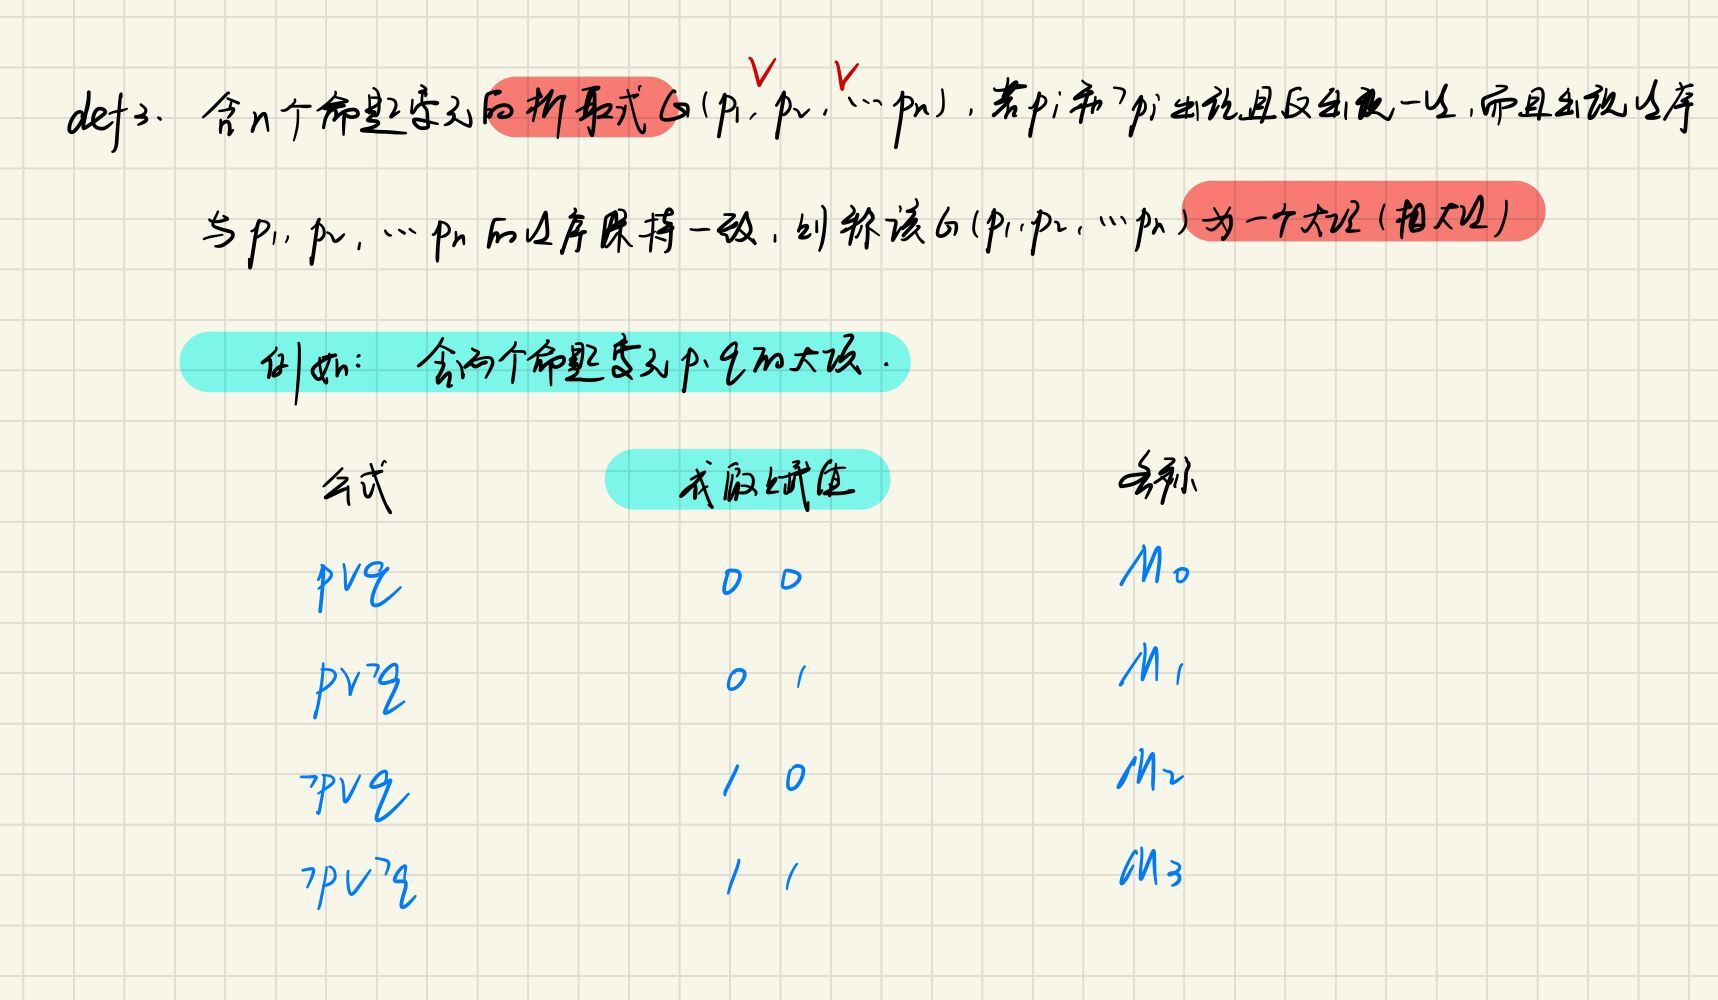 def3. 含n个命题变元的析取式G(p₁, p₂, …pn), 若pi和¬pi出现且仅出现一次,而且出现次序
与p₁, p₂, …pn的次序保持一致,则称该G(p₁,p₂,…pn)为一个大项(极大项)
例如: 含两个命题变元p、q的大项.
公式 成假赋值 名称
p∨q 0 0 M₀
p∨¬q 0 1 M₁
¬p∨q 1 0 M₂
¬p∨¬q 1 1 M₃